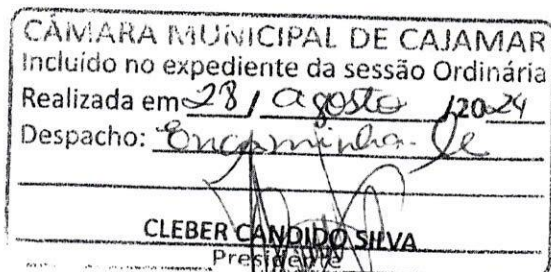 CÂMARA MUNICIPAL DE CAJAMAR
Incluído no expediente da sessão Ordinária
Realizada em 28 / agosto /2024
Despacho: Encaminha-se
CLEBER CANDIDO SILVA
Presidente